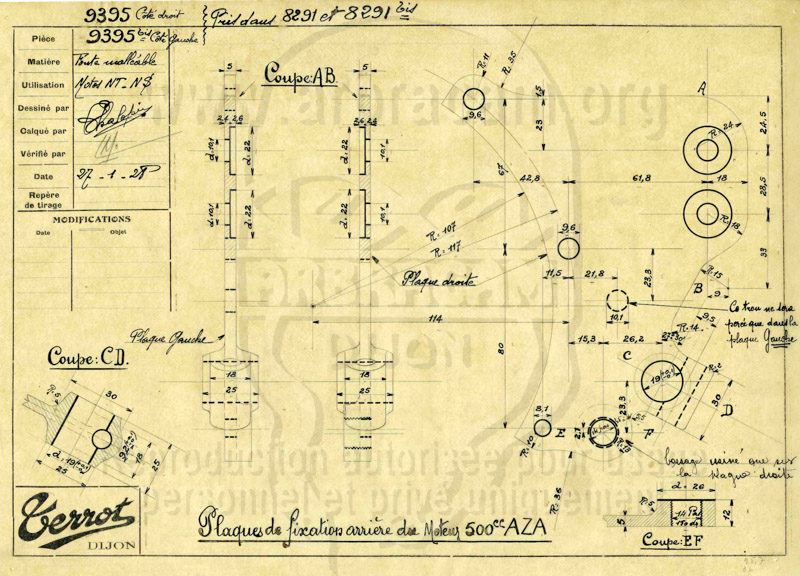 9395 Côté droit
9395 bis Côté Gauche
Pris dans 8291 et 8291 bis
Pièce
Matière Fonte malléable
Utilisation Motos NT-NS
Dessiné par
Calqué par
Vérifié par
Date 27-1-28
Repère
de tirage
MODIFICATIONS
Date Objet
Coupe: AB.
5
5
2,4 2,6
2,6 2,4
d=10,1
d=22
d=22
10,1
d=10,1
d=22
d=22
10,1
R=107
R=117
Plaque droite
Plaque Gauche
114
18
25
18
25
R=11
R=35
9,6
1,5
23
67
42,8
61,8
18
A
R=24
24,5
28,5
R=18
33
9,6
11,5
21,8
23,8
10,1
R=15
B
9
9,5
Ce trou ne sera
percé que dans la
plaque Gauche
15,3
26,2
R=14
80
C
19
R=2
30
D
23,3
8,1
E
F
R=10
R=13
R=36
Coupe: CD.
30
R=5
d=19
25
18
25
bossage usiné que sur
la plaque droite
d=26
R=5
5
12
Coupe: EF
Terrot
DIJON
Plaques de fixation arrière du Moteur 500cc AZA
www.arbracam.org
ARBRACAM
DIJON
Reproduction autorisée pour usage
personnel et privé uniquement